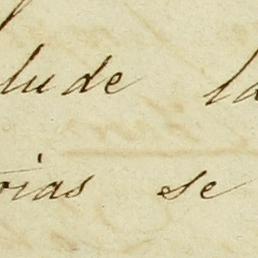 lude la
oias se